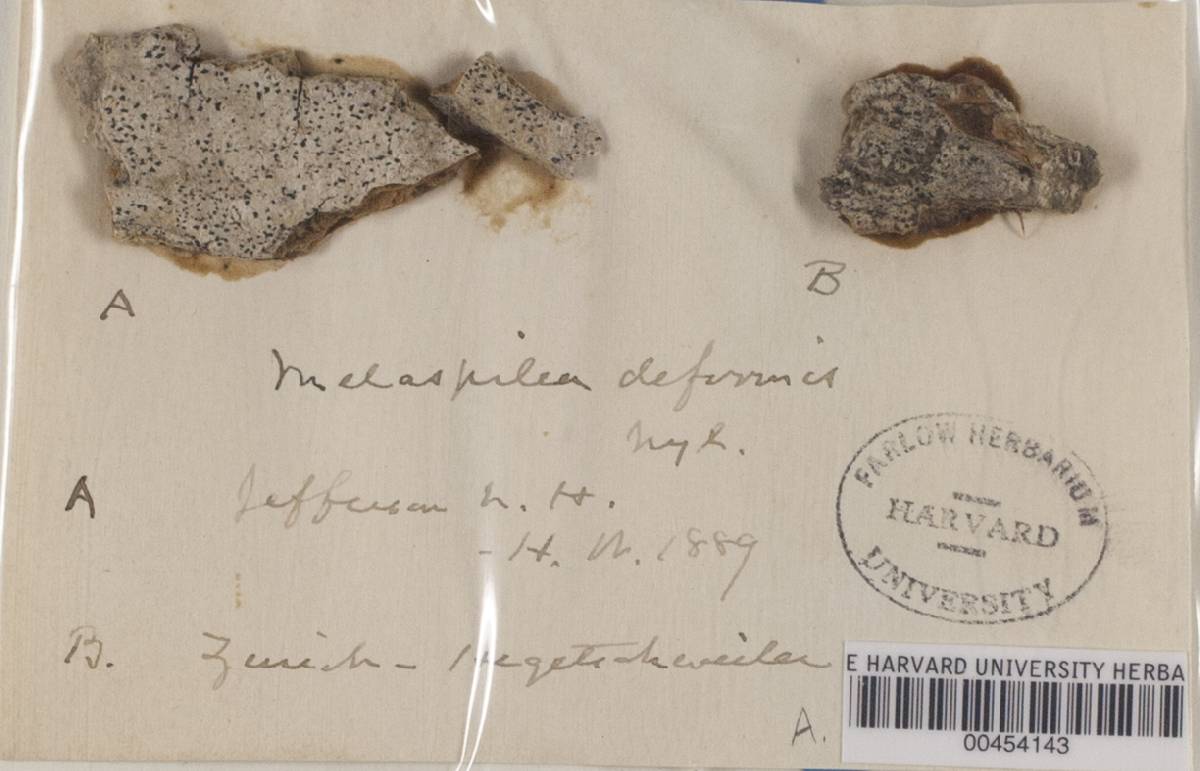 A
B
Melaspilea deformis
Nyl.
A Jefferson N. H.
- H. W. 1889
B. Zurich - Hegetschweiler
FARLOW HERBARIUM
HARVARD
UNIVERSITY
A.
E HARVARD UNIVERSITY HERBA
00454143